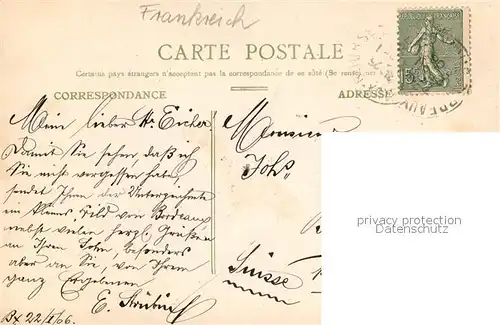 Frankreich
RÉPUBLIQUE FRANÇAISE
15
CARTE POSTALE
Certains pays étrangers n'acceptent pas la correspondance de ce côté (Se rens
CORRESPONDANCE
ADRESSE
Mein lieber Hr Eicher.
Damit Sie sehen, daß ich
Sie nicht vergessen habe,
sendet Ihnen der Unterzeichnete
im kleines Bild von Bordeaux
nebst vielen herzl. Grüßen
an Ihren Sohn, besonders
aber an Sie, von Ihrem
ganz Ergebenen
E.
Bx 22/ /06.
Monsieur
Johs
Suisse
privacy protection
Datenschutz